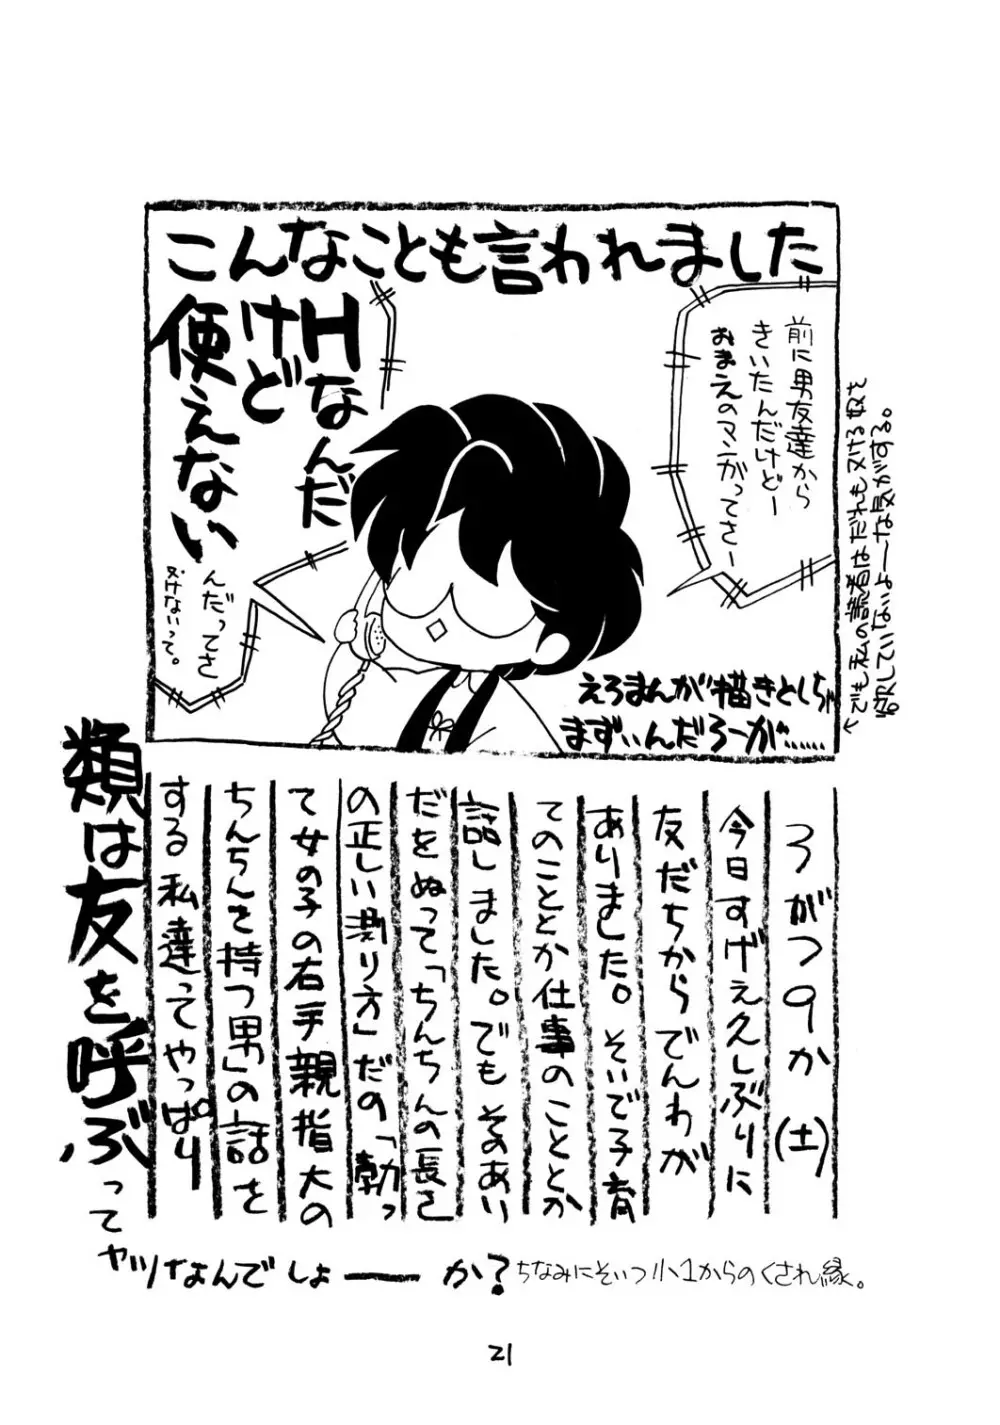 こんなことも言われました
前に男友達から
きいたんだけどー
おまえのマンガってさー
Hなんだ
けど
便えない
んだってさ
ヌけないって。
えろまんが描きとしちゃ
まずいんだろーが……
←でも私の読者はだれもヌける奴を
欲していないよーな気がする。
3がつ9か(土)
今日すげえ久しぶりに
友だちからでんわが
ありました。そいで子育
てのこととか仕事のこととか
話しました。でもそのあい
だをぬって「ちんちんの長さ
の正しい測り方」だの「勃っ
て女の子の右手親指大の
ちんちんを持つ男」の話を
する私達ってやっぱり
類は友を呼ぶって
ヤツなんでしょーーか?
ちなみにそいつ小1からのくされ縁。
21